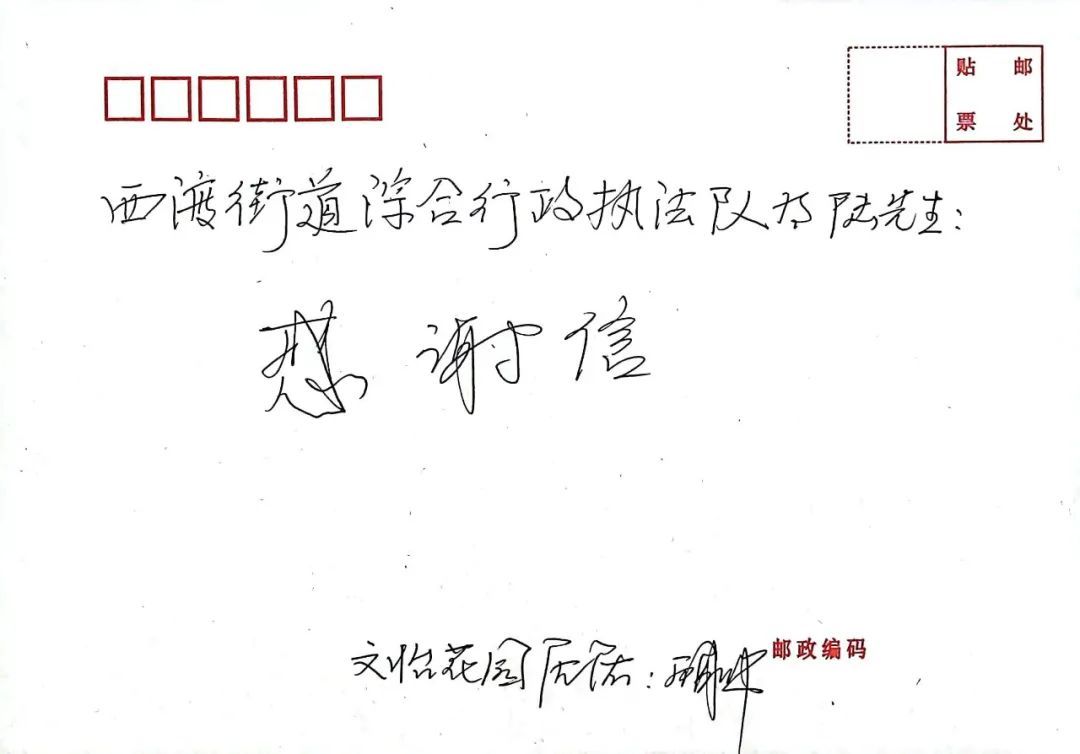 贴 邮
票 处
西渡街道综合行政执法队 陆先生：
感谢信
文怡花园居民：
邮政编码